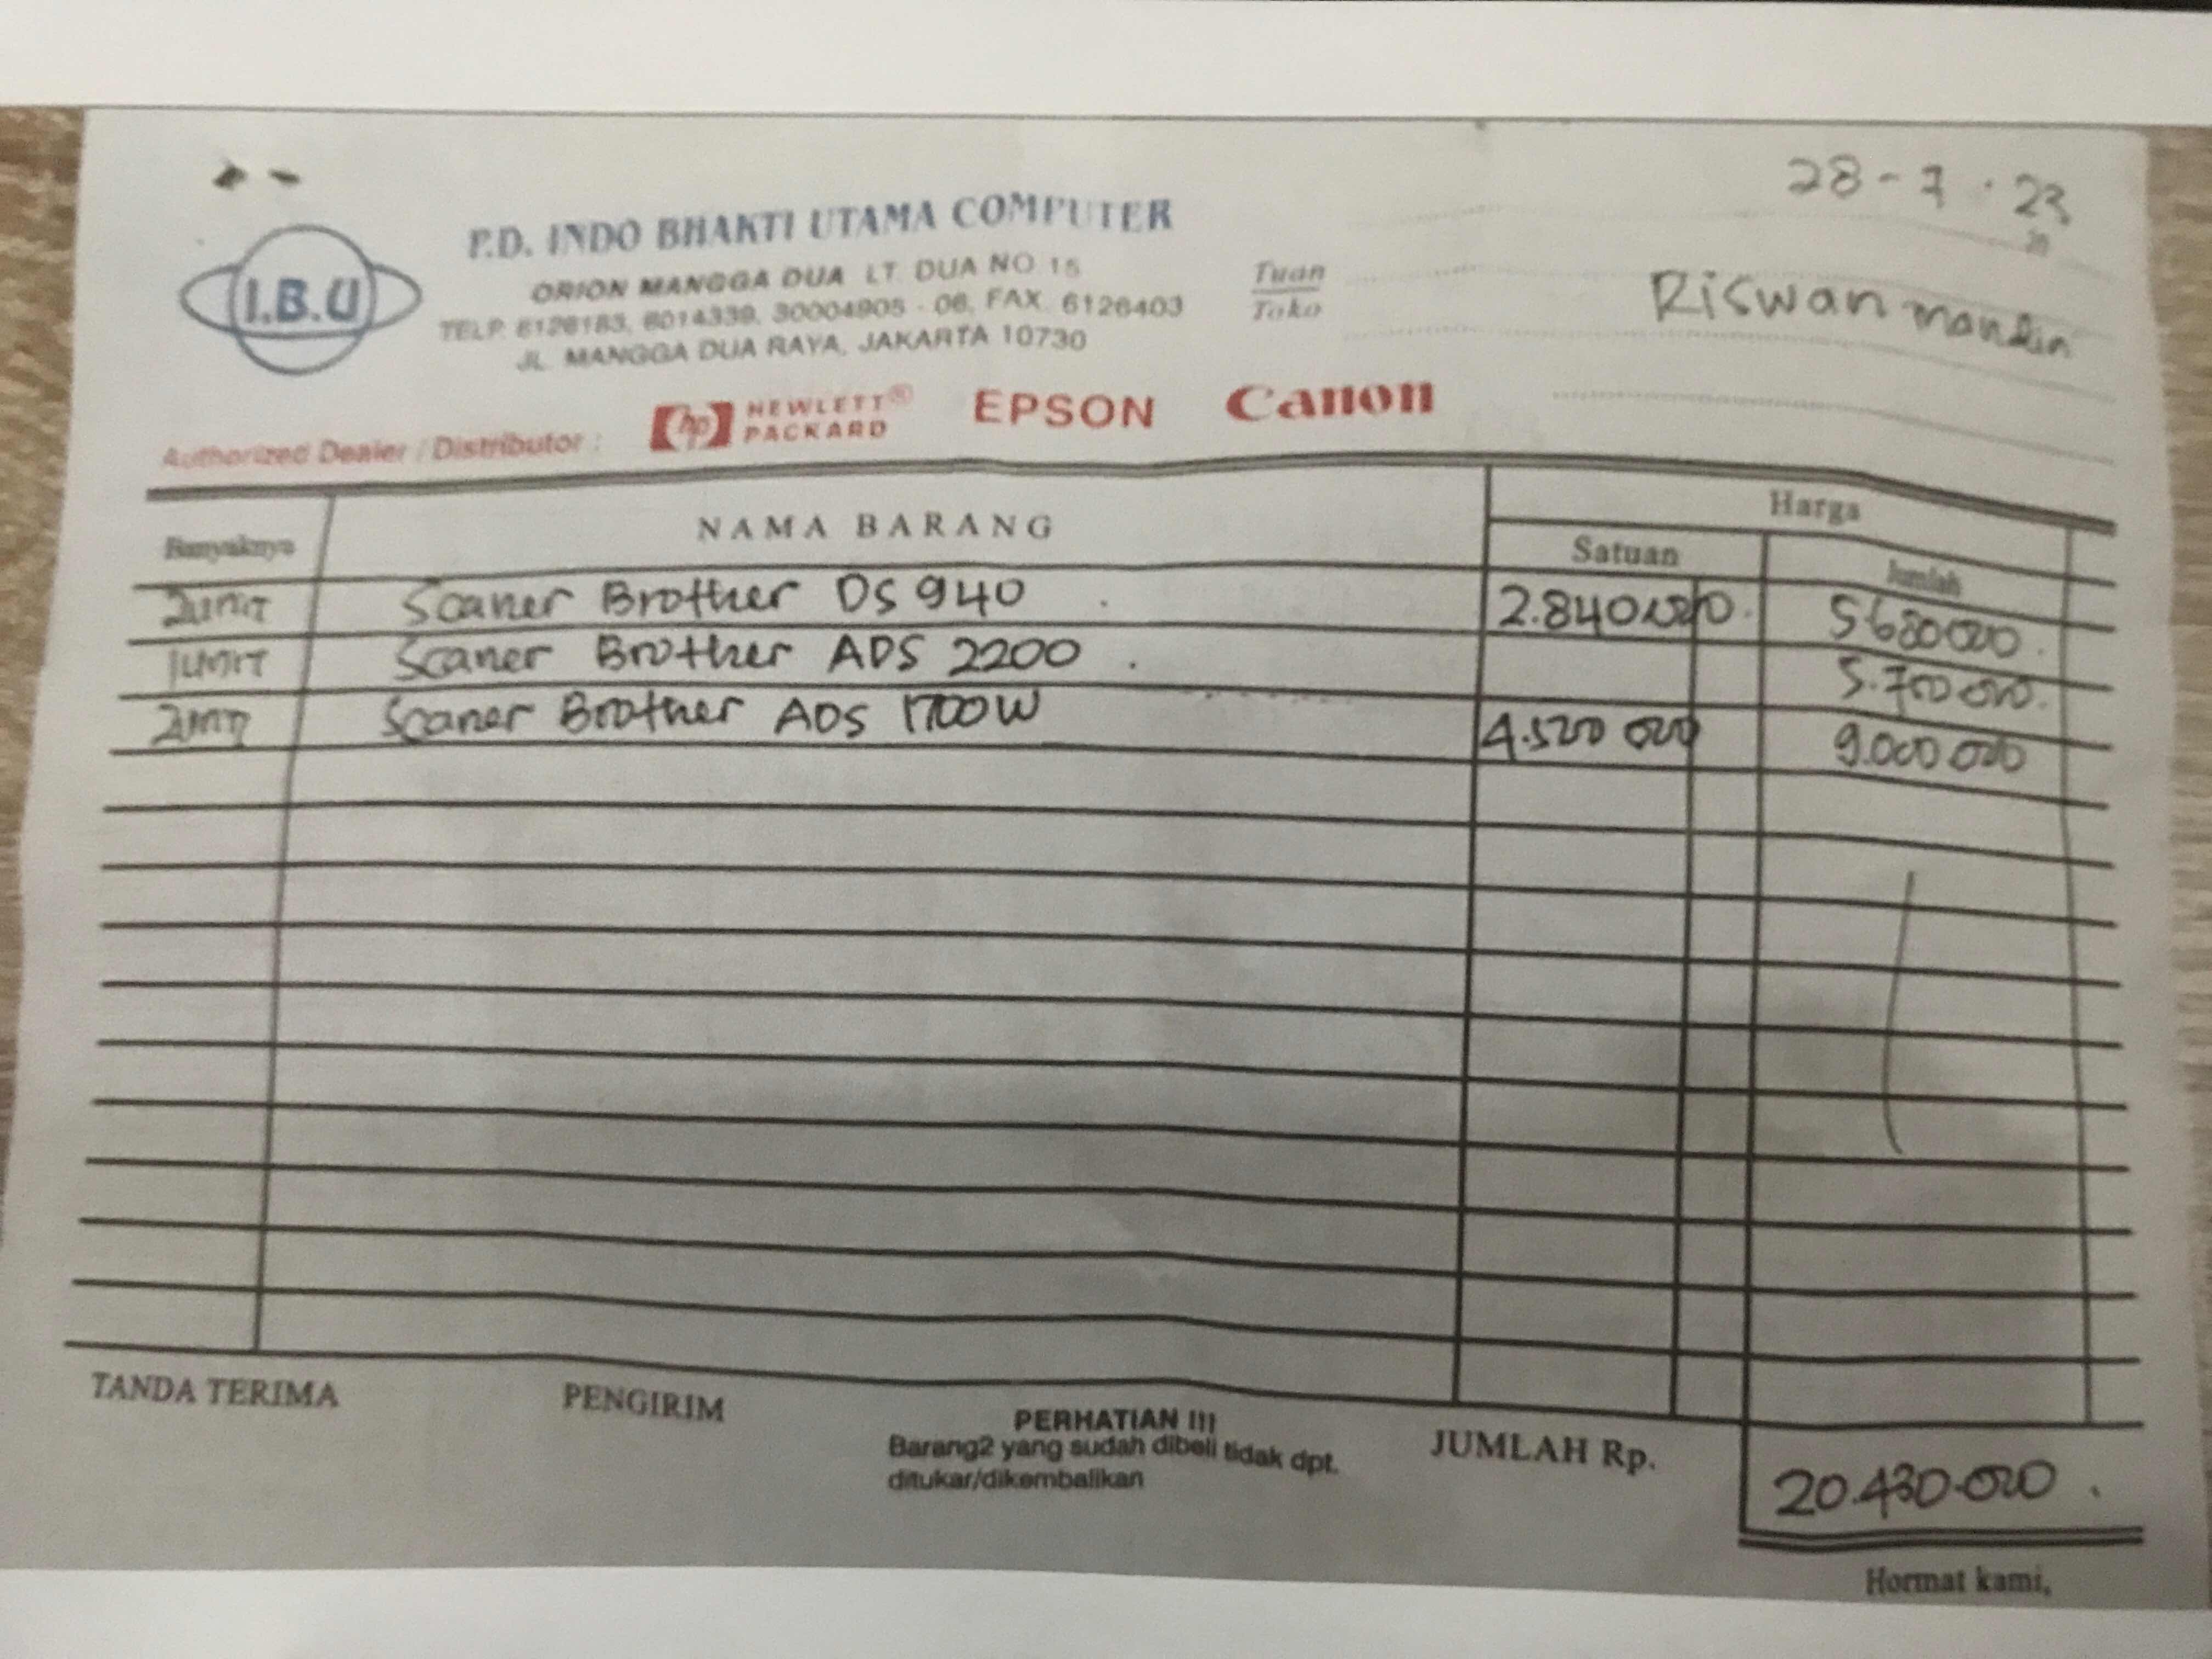 28 - 7 . 23
20
P.D. INDO BHAKTI UTAMA COMPUTER
ORION MANGGA DUA LT. DUA NO 15
TELP. 6126183, 6014339, 30004905 - 06, FAX. 6126403
JL. MANGGA DUA RAYA, JAKARTA 10730
I.B.U
Tuan
Toko
Riswan
Authorized Dealer / Distributor :
hp HEWLETT® PACKARD EPSON Canon
Banyaknya NAMA BARANG Harga
Satuan Jumlah
2 UNIT Scaner Brother DS 940 2.840.000 5680000
1 UNIT Scaner Brother ADS 2200 5.700.000
2 UNIT Scaner Brother ADS 1700W 9.000.000
TANDA TERIMA PENGIRIM
PERHATIAN !!!
Barang2 yang sudah dibeli tidak dpt.
ditukar/dikembalikan
JUMLAH Rp. 20.430.000
Hormat kami,